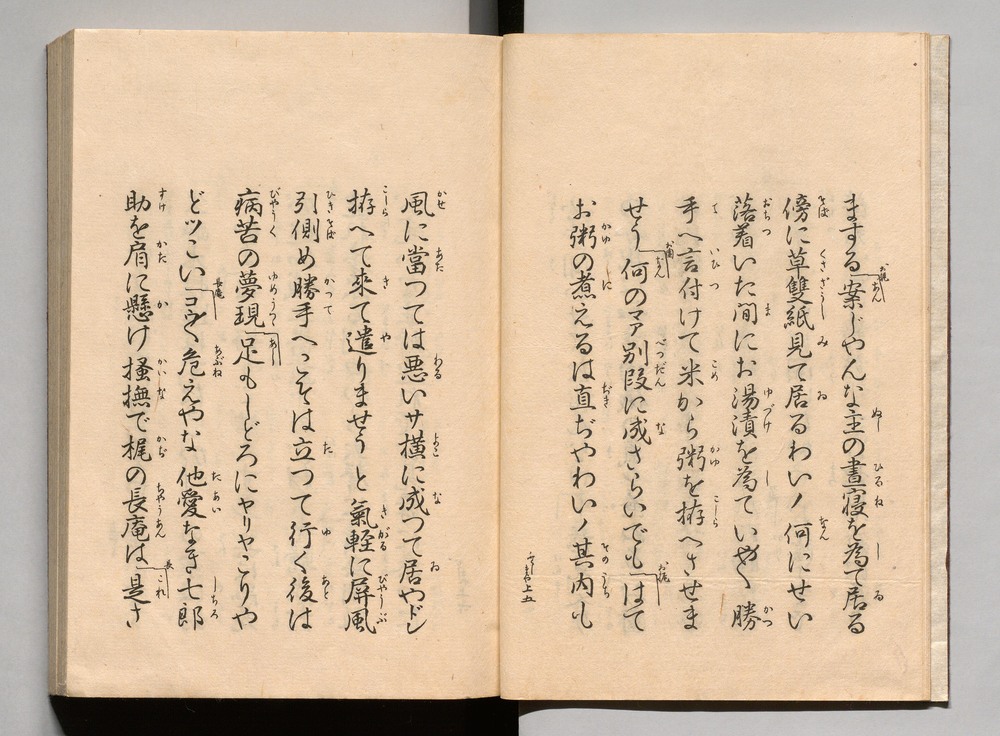 まする案じやんな主の晝寝を為て居る
傍に草雙紙見て居るわいノ何にせい
落着いた間にお湯漬を為ていやく勝
手へ言付けて米から粥を拵へさせま
せう何のマア別段に成さらいでもはて
お粥の煮えるは直ぢやわいノ其内も
風に當つては悪いサ横に成つて居やドレ
拵へて來て遣りませうと氣軽に屏風
引側め勝手へこそは立つて行く後は
病苦の夢現足もしどろにヤリャこりや
どッこいコウく危えやな他愛なき七郎
助を肩に懸け掻撫で梶の長庵は是さ